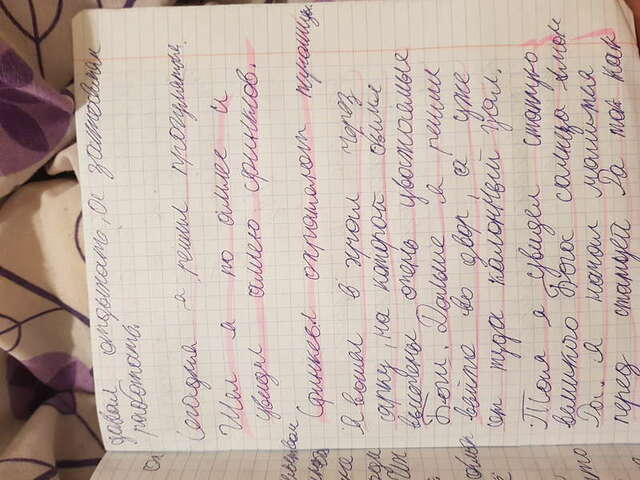 давал отдыхать, а заставлял
работать.
Сегодня я решил прогуляться.
Шел я по аллее и
увидел аллею сфинксов.
Сфинксы охраняют пирамиды
Я вошел в храм через
арку, на которой были
высечены очень уважаемые
Боги. Дальше я решил
войти во двор, а уже
от туда калонный зал.
Там я увидел статую
великого Бога солнца Амон
Ра. Я начал молится
перед статуей Ра так как